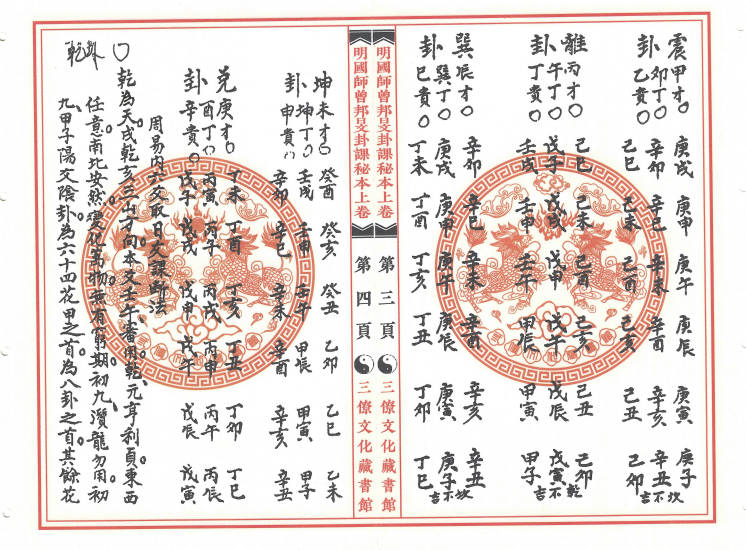 震甲才○ 庚戌 庚申 庚午 庚辰 庚寅 庚子
卯丁○ 辛卯 辛巳 辛未 辛酉 辛亥 辛丑 坎不吉
卦乙貴○ 己巳 己未 己酉 己亥 己丑 己卯
離丙才○ 己巳 己未 己酉 己亥 己丑 己卯
午丁○ 戊子 戊戌 戊申 戊午 戊辰 戊寅 乾不吉
卦丁貴○ 壬戌 壬申 壬午 甲辰 甲寅 甲子
巽辰才○ 辛卯 辛巳 辛未 辛酉 辛亥 辛丑
巽丁○ 庚戌 庚申 庚午 庚辰 庚寅 庚子 坎不吉
卦巳貴○ 丁未 丁酉 丁亥 丁丑 丁卯 丁巳
明國師曾邦旻卦課秘本上卷 第三頁 三僚文化藏書館
明國師曾邦旻卦課秘本上卷 第四頁 三僚文化藏書館
坤未才○ 癸酉 癸亥 癸丑 乙卯 乙巳 乙未
坤丁○ 壬戌 壬申 壬午 甲辰 甲寅 甲子
卦申貴○ 辛卯 辛巳 辛未 辛酉 辛亥 辛丑
兌庚才○ 丁未 丁酉 丁亥 丁丑 丁卯 丁巳
酉丁○ 丙寅 丙子 丙戌 丙申 丙午 丙辰
卦辛貴○ 戊子 戊戌 戊申 戊午 戊辰 戊寅
周易內六爻取日文課斷法
○ 乾為天戌乾亥三山方向本爻壬午審用乾。元亨利貞東西
任意南北安然。建化萬物無有窮期。初九、潛龍勿用。初
九、甲子陽交陰。卦為六十四花甲之首。為八卦之首。其餘花
乾卦